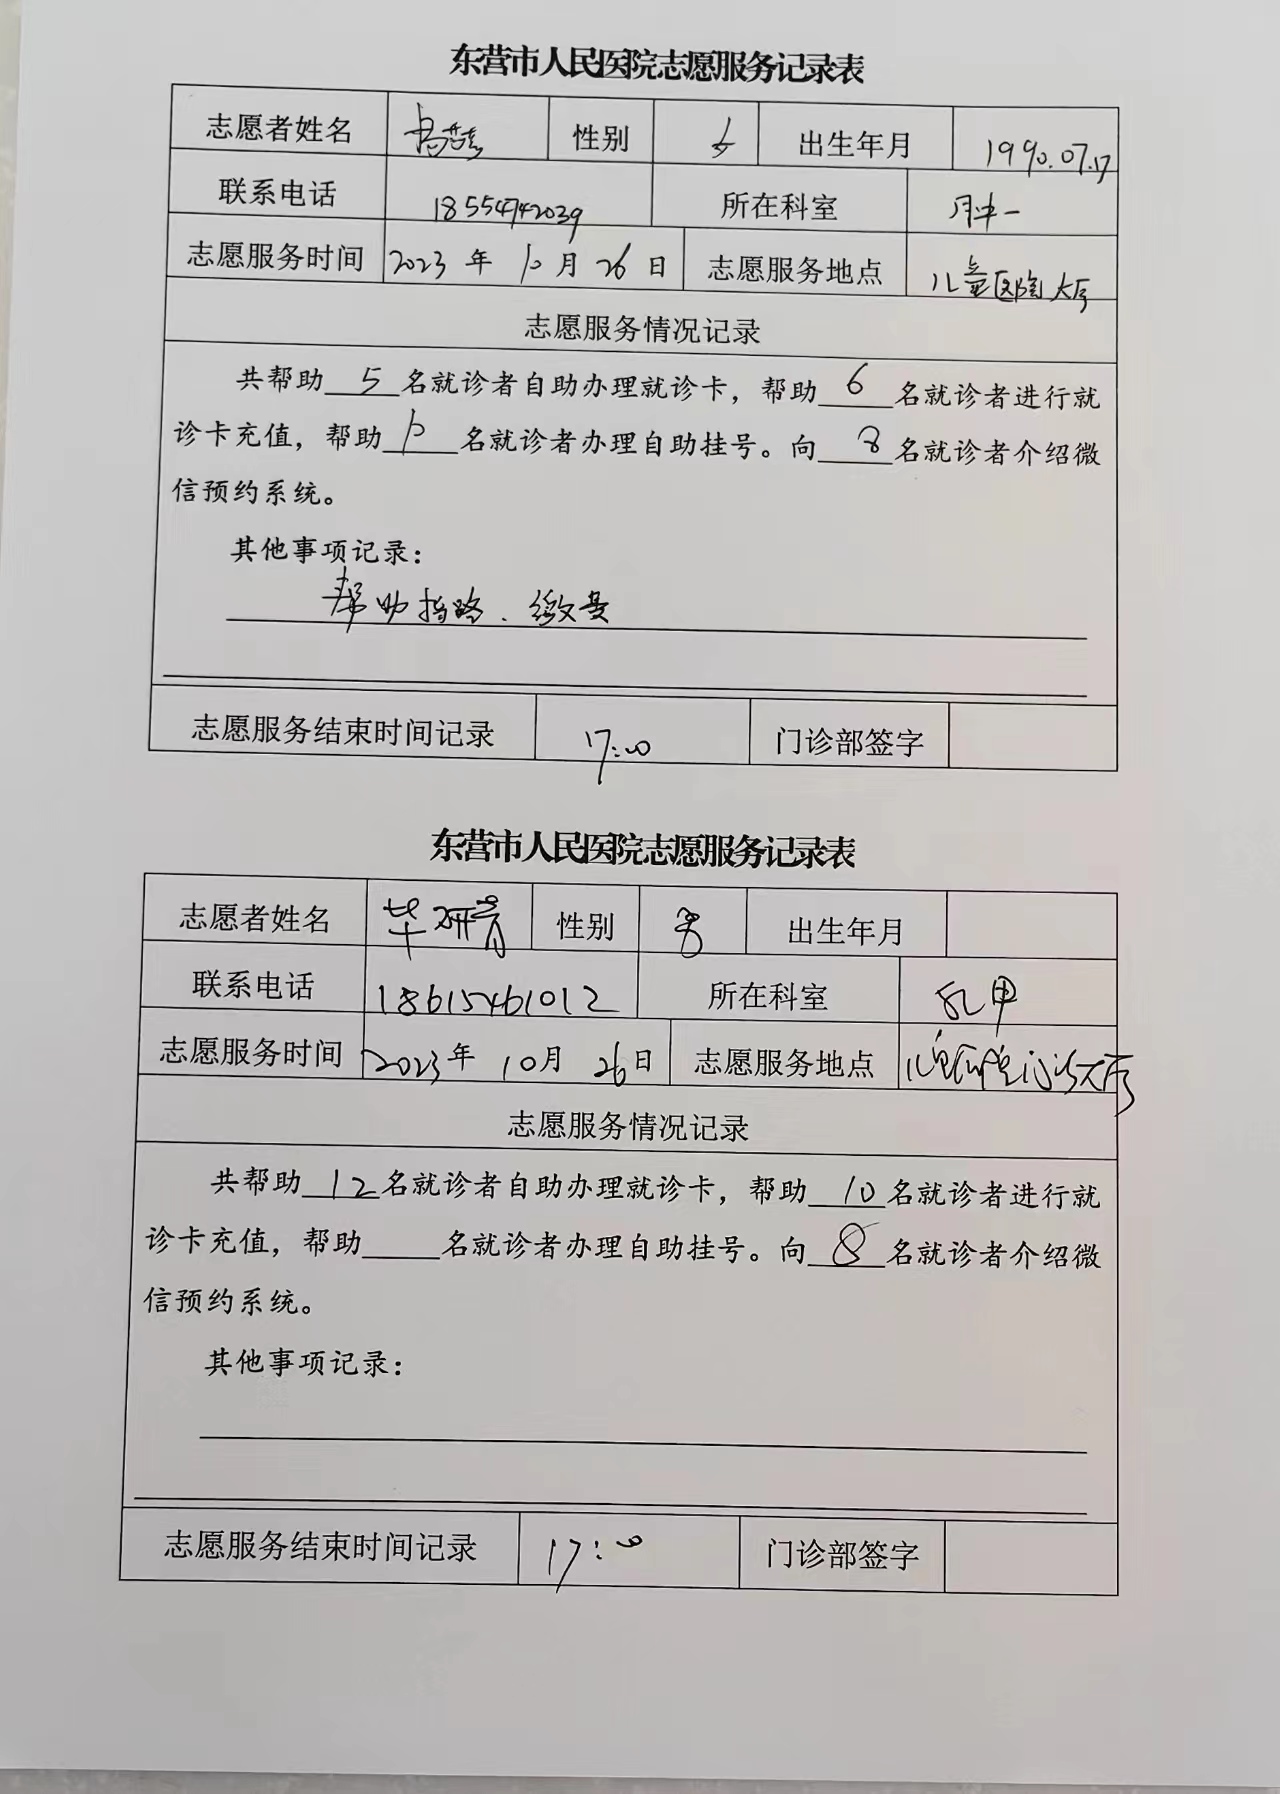 东营市人民医院志愿服务记录表
志愿者姓名 性别 女 出生年月 1990.07.17
联系电话 18554742039 所在科室
志愿服务时间 2023 年 10 月 26 日 志愿服务地点 儿童医院大厅
志愿服务情况记录
共帮助 5 名就诊者自助办理就诊卡，帮助 6 名就诊者进行就
诊卡充值，帮助 10 名就诊者办理自助挂号。向 8 名就诊者介绍微
信预约系统。
其他事项记录：
帮助指路、缴费
志愿服务结束时间记录 17:00 门诊部签字
东营市人民医院志愿服务记录表
志愿者姓名 毕研青 性别 男 出生年月
联系电话 18615461012 所在科室 乳甲
志愿服务时间 2023 年 10 月 26 日 志愿服务地点 儿童医院门诊大厅
志愿服务情况记录
共帮助 12 名就诊者自助办理就诊卡，帮助 10 名就诊者进行就
诊卡充值，帮助 名就诊者办理自助挂号。向 8 名就诊者介绍微
信预约系统。
其他事项记录：
志愿服务结束时间记录 17:00 门诊部签字